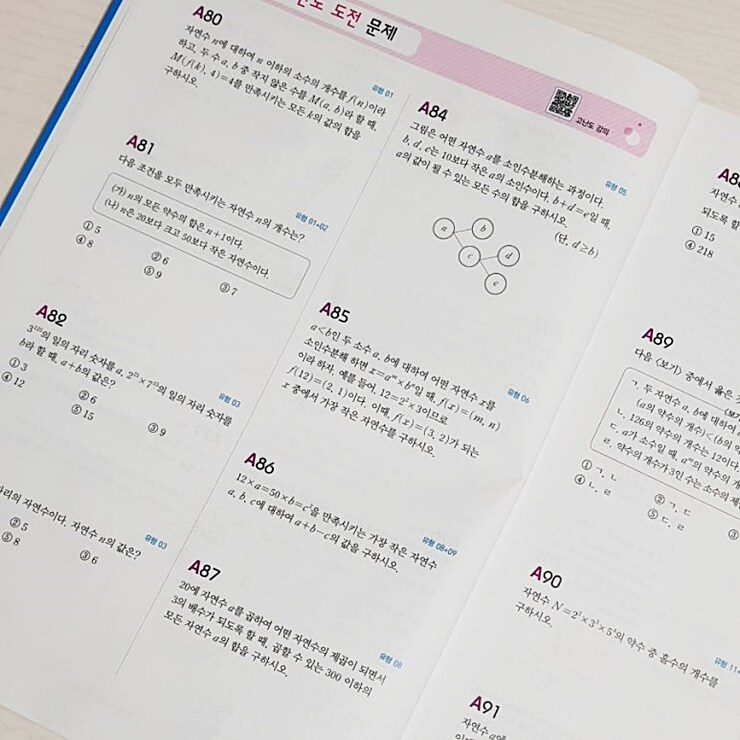 도전 문제
A80
자연수 n에 대하여 n 이하의 소수의 개수를 f(n)이라
하고, 두 수 a, b 중 작지 않은 수를 M(a, b)라 할 때,
M(f(k), 4)=4를 만족시키는 모든 k의 값의 합을
구하시오.
유형 01
A81
다음 조건을 모두 만족시키는 자연수 n의 개수는?
유형 01+02
(가) n의 모든 약수의 합은 n+1이다.
(나) n은 20보다 크고 50보다 작은 자연수이다.
① 5
② 6
③ 7
④ 8
⑤ 9
A82
일의 자리 숫자를 a, 일의 자리 숫자를
b라 할 때, a+b의 값은?
유형 03
① 3
② 6
③ 9
④ 12
⑤ 15
자리의 자연수이다. 자연수 n의 값은?
유형 03
② 5
③ 6
⑤ 8
고난도 강의
A84
그림은 어떤 자연수 a를 소인수분해하는 과정이다.
b, d, e는 10보다 작은 a의 소인수이다. b+d=e일 때,
a의 값이 될 수 있는 모든 수의 합을 구하시오.
(단, d≥b)
유형 05
a
b
c
d
e
A85
a<b인 두 소수 a, b에 대하여 어떤 자연수 x를
소인수분해 하면 x=aᵐ×bⁿ일 때, f(x)=(m, n)
이라 하자. 예를 들어, 12=2²×3이므로
f(12)=(2, 1)이다. 이때, f(x)=(3, 2)가 되는
x 중에서 가장 작은 자연수를 구하시오.
유형 06
A86
12×a=50×b=c²을 만족시키는 가장 작은 자연수
a, b, c에 대하여 a+b-c의 값을 구하시오.
유형 08+09
A87
20에 자연수 a를 곱하여 어떤 자연수의 제곱이 되면서
3의 배수가 되도록 할 때, 곱할 수 있는 300 이하의
모든 자연수 a의 합을 구하시오.
유형 08
자연수
되도록 할
① 15
④ 218
A89
다음 <보기> 중에서 옳은 것
ㄱ. 두 자연수 a, b에 대하여
(a의 약수의 개수)<(b의 약
ㄴ. 126의 약수의 개수는 12이다.
ㄷ. a가 소수일 때, aᵐ의 약수의 개
ㄹ. 약수의 개수가 3인 수는 소수의 제
① ㄱ, ㄴ
② ㄱ, ㄷ
③
④ ㄴ, ㄹ
⑤ ㄷ, ㄹ
A90
자연수 약수 중 홀수의 개수를
구하시오.
유형 11+
A91
자연수